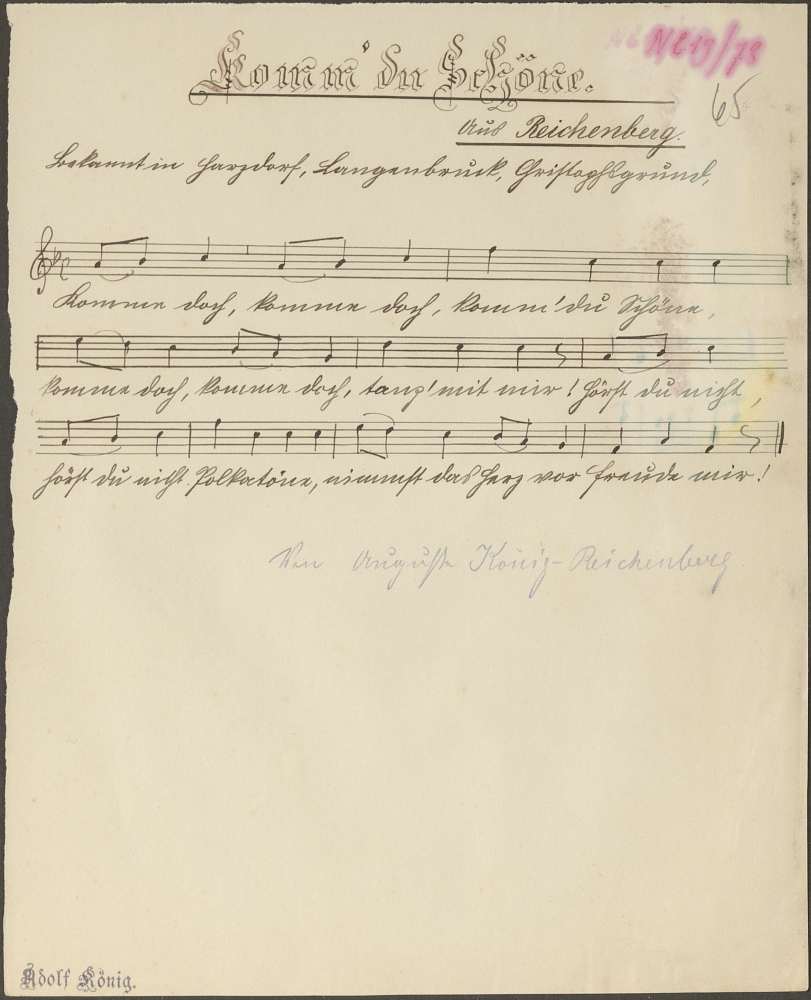 NL 19/78
Komm' du Schöne.
65
Aus Reichenberg.
Bekannt in Harzdorf, Langenbruck, Christophsgrund,
Komme doch, komme doch, komm' du Schöne,
komme doch, komme doch, tanz' mit mir! Hörst du nicht,
hörst du nicht Polkatöne, nimmst das Herz vor Freude mir!
Von Auguste König-Reichenberg.
Adolf König.